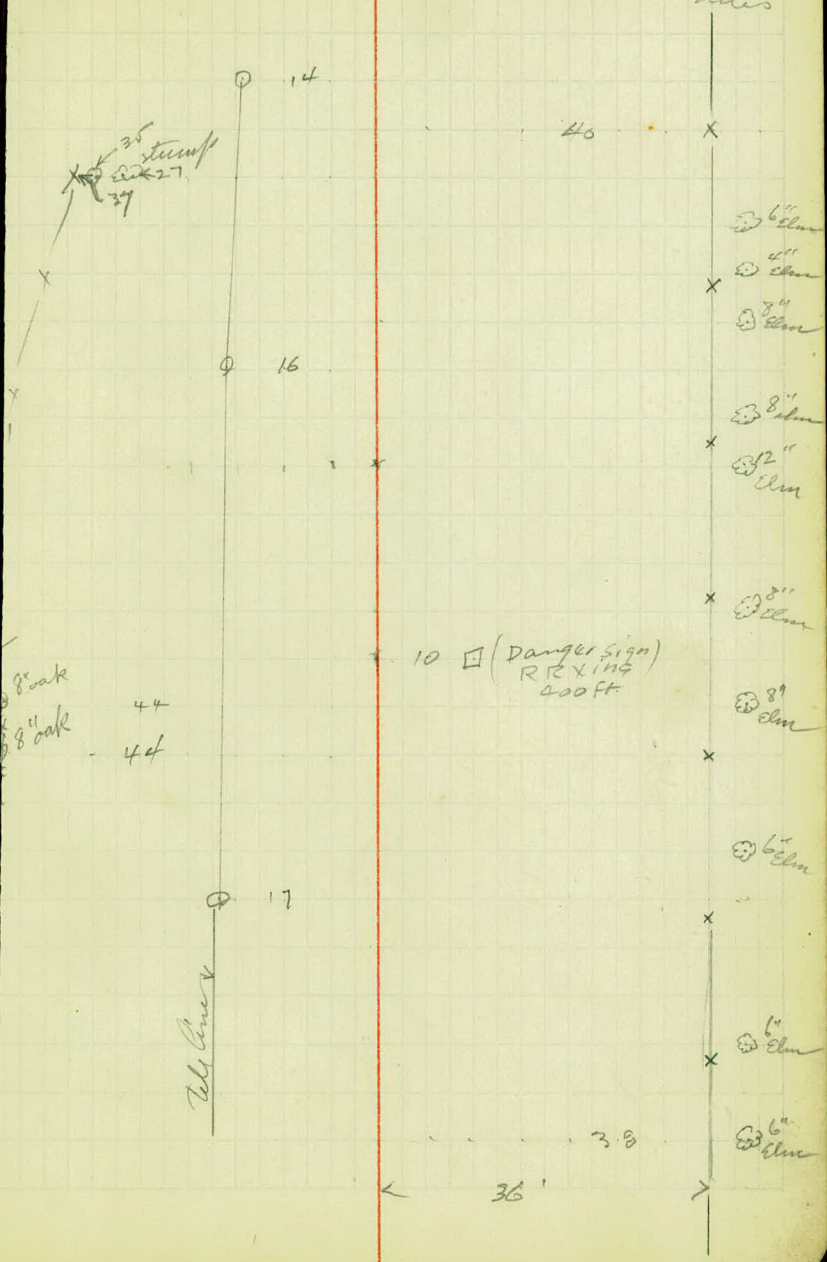 14
40
35
stump
27
37
6" Elm
4" Elm
8" Elm
16
8" Elm
12" Elm
8" Elm
10 (Danger Sign)
RR Xing
400 ft
8" oak
44
8" Elm
8" oak
44
6" Elm
17
Tel Line
6" Elm
38
6" Elm
36'